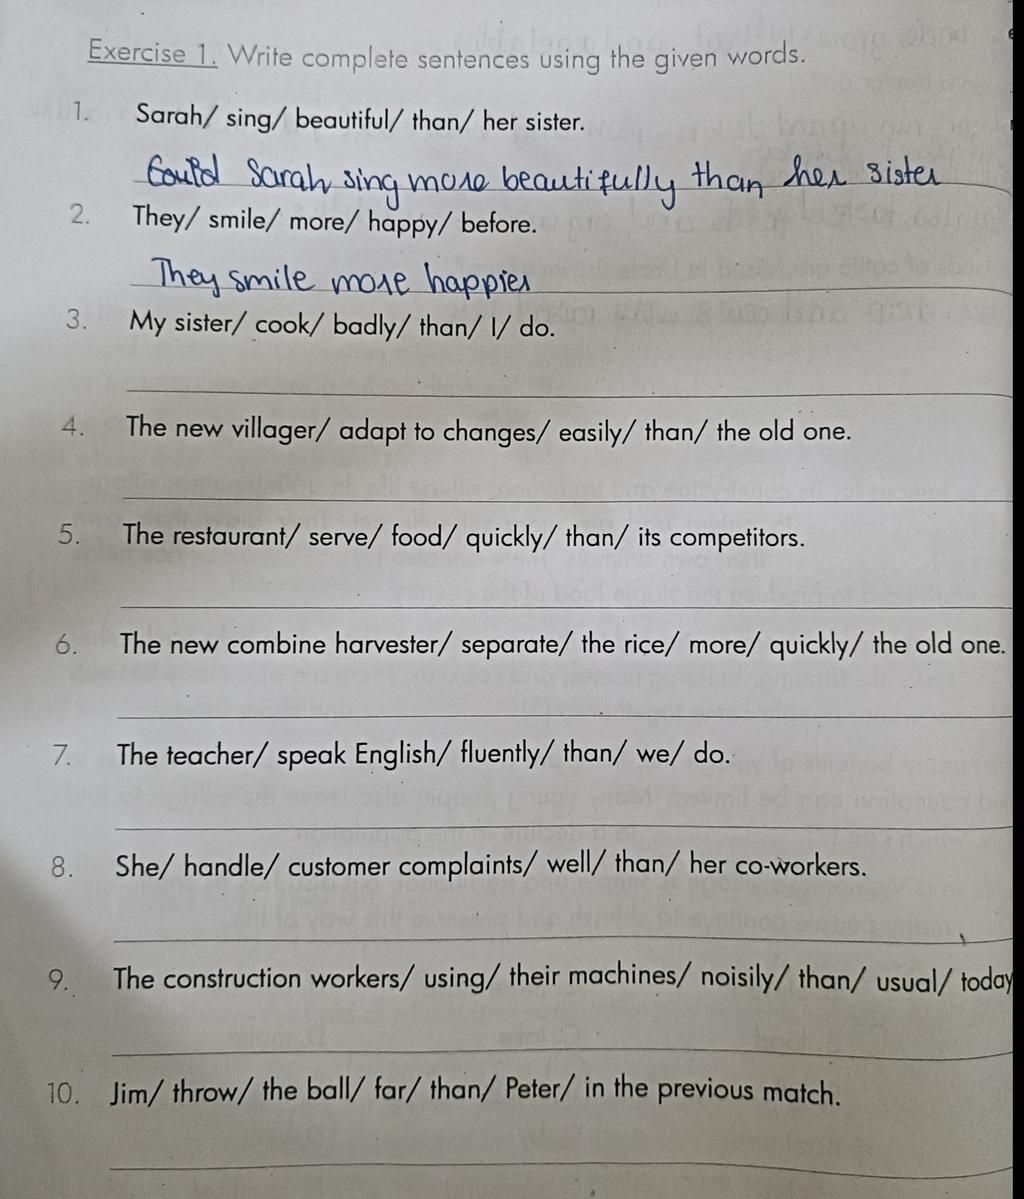 Exercise 1. Write complete sentences using the given words.
1. Sarah/ sing/ beautiful/ than/ her sister.
Sarah sing more beautifully than her sister
2. They/ smile/ more/ happy/ before.
They smile more happier
3. My sister/ cook/ badly/ than/ I/ do.
4. The new villager/ adapt to changes/ easily/ than/ the old one.
5. The restaurant/ serve/ food/ quickly/ than/ its competitors.
6. The new combine harvester/ separate/ the rice/ more/ quickly/ the old one.
7. The teacher/ speak English/ fluently/ than/ we/ do.
8. She/ handle/ customer complaints/ well/ than/ her co-workers.
9. The construction workers/ using/ their machines/ noisily/ than/ usual/ today
10. Jim/ throw/ the ball/ far/ than/ Peter/ in the previous match.